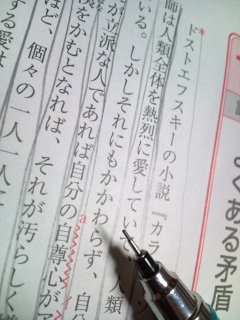 ドストエフスキーの小説『カラ
師は人類全体を熱烈に愛してい
いる。しかしそれにもかかわらず、人類
が立派な人であれば自分の自尊心が
をかむとなれば、それが汚らしく
ほど、個々の一人一人
する愛は
よくある矛盾
a